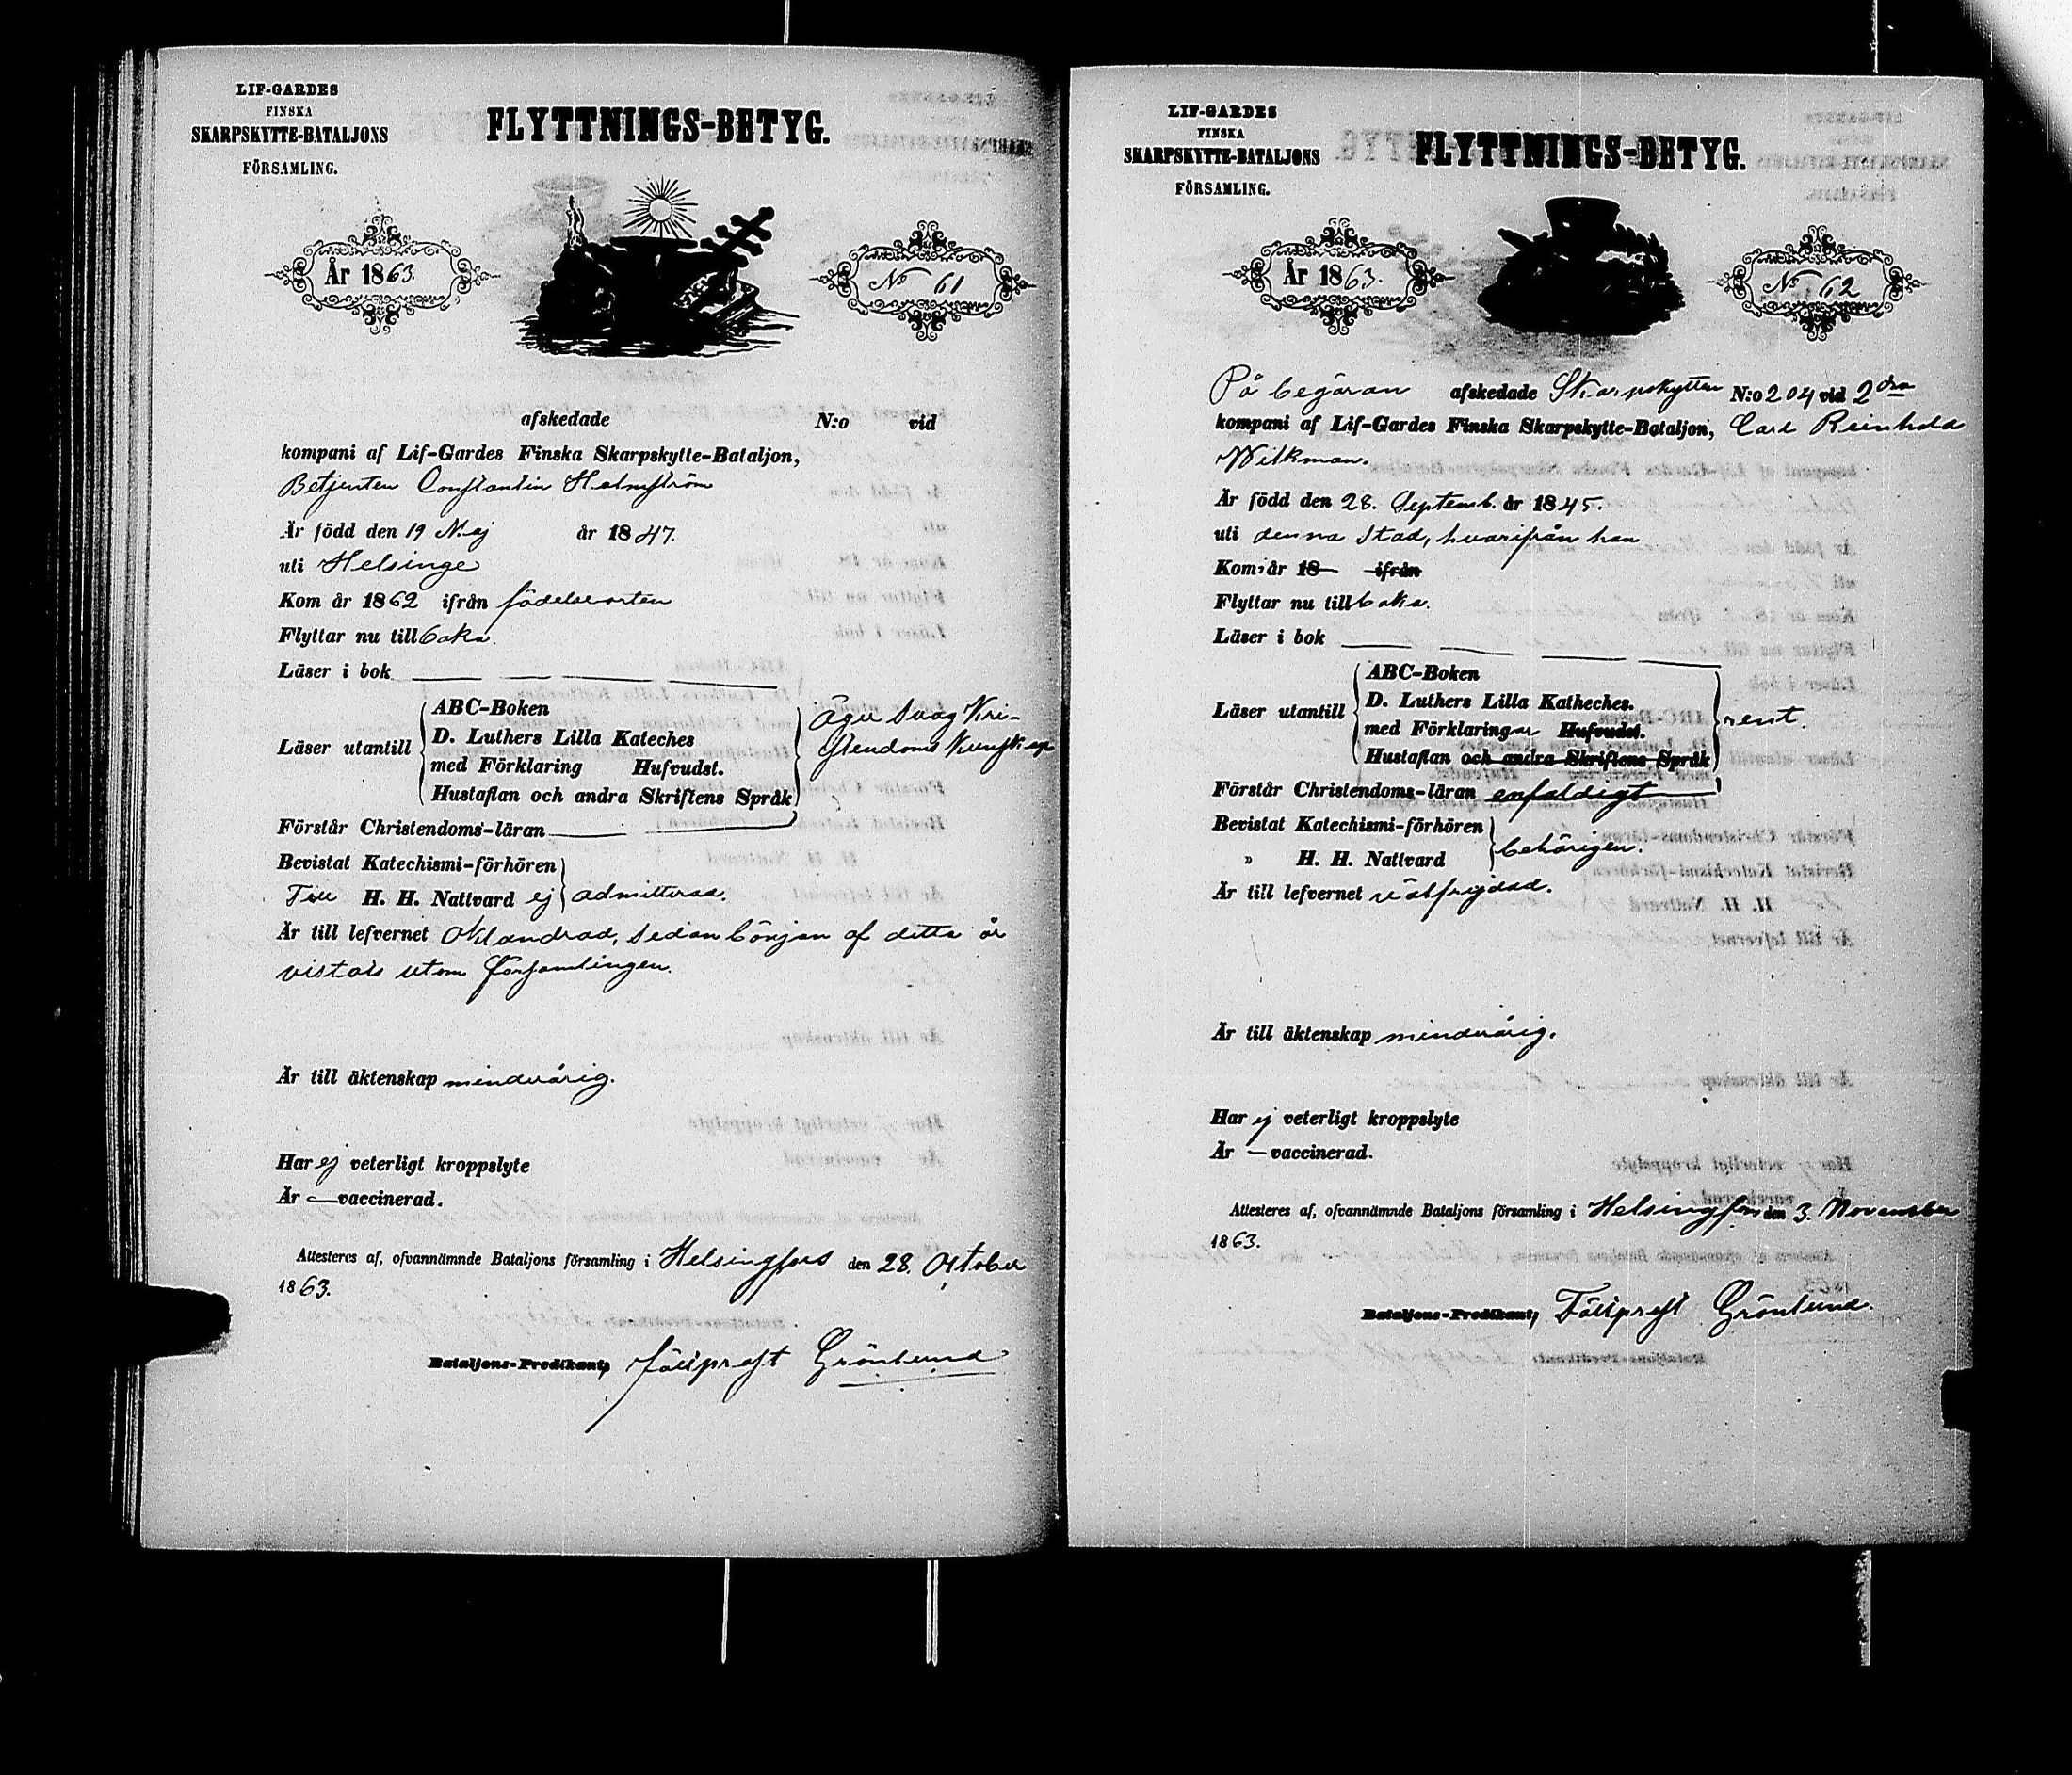 LIF-GARDES
FINSKA
SKARPSKYTTE-BATALJONS
FÖRSAMLING.
FLYTTNINGS-BETYG.
År 1863.
No 61
afskedade N:o vid
kompani af Lif-Gardes Finska Skarpskytte-Bataljon,
Betjenten Constantin Holmström
Är född den 19 Maj år 1847.
uti Helsinge
Kom år 1862 ifrån födelseorten
Flyttar nu tillbaka.
Läser i bok
Läser utantill
ABC-Boken
D. Luthers Lilla Kateches
med Förklaring Hufvudst.
Hustaflan och andra Skriftens Språk
Äger svag Kri-
stendoms kunskap
Förstår Christendoms-läran
Bevistat Katechismi-förhören
Till H. H. Nattvard ej admitterad.
Är till lefvernet oklandrad, sedan början af detta år
vistats utom församlingen.
Är till äktenskap minderårig.
Har ej veterligt kroppslyte
Är vaccinerad.
Attesteres af, ofvannämnde Bataljons församling i Helsingfors den 28. October
1863.
Bataljons-Predikant, Fältprest Grönlund
LIF-GARDES
FINSKA
SKARPSKYTTE-BATALJONS
FÖRSAMLING.
FLYTTNINGS-BETYG.
År 1863.
No 62
På begäran afskedade Skarpskytten N:o 204 vid 2dra
kompani af Lif-Gardes Finska Skarpskytte-Bataljon, Carl Reinhold
Wilkman.
Är född den 28. Septemb. år 1845.
uti denna Stad, hvarifrån han
Kom år 18 ifrån
Flyttar nu tillbaka.
Läser i bok
Läser utantill
ABC-Boken
D. Luthers Lilla Katheches.
med Förklaringar Hufvudst.
Hustaflan och andra Skriftens Språk
rent.
Förstår Christendoms-läran enfaldigt
Bevistat Katechismi-förhören
" H. H. Nattvard behörigen.
Är till lefvernet välfrejdad.
Är till äktenskap minderårig.
Har ej veterligt kroppslyte
Är vaccinerad.
Attesteres af, ofvannämnde Bataljons församling i Helsingfors den 3. November
1863.
Bataljons-Predikant, Fältprest Grönlund.